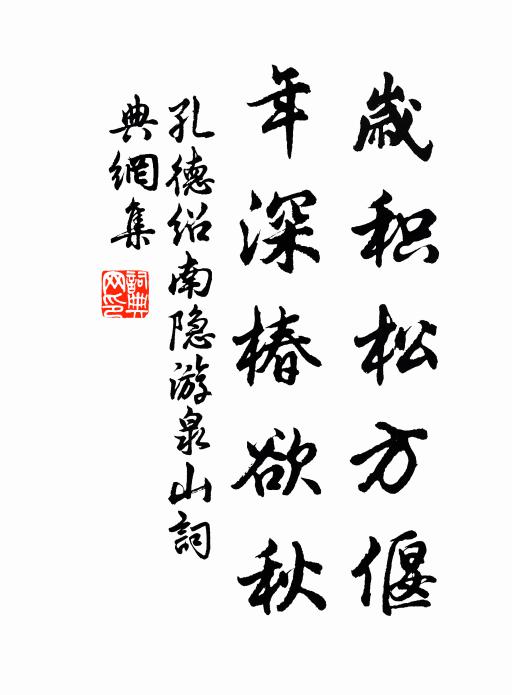 歲积松方偃
年深椿欲秋
孔德绍南隐游泉山詞
典網集
詞典网印